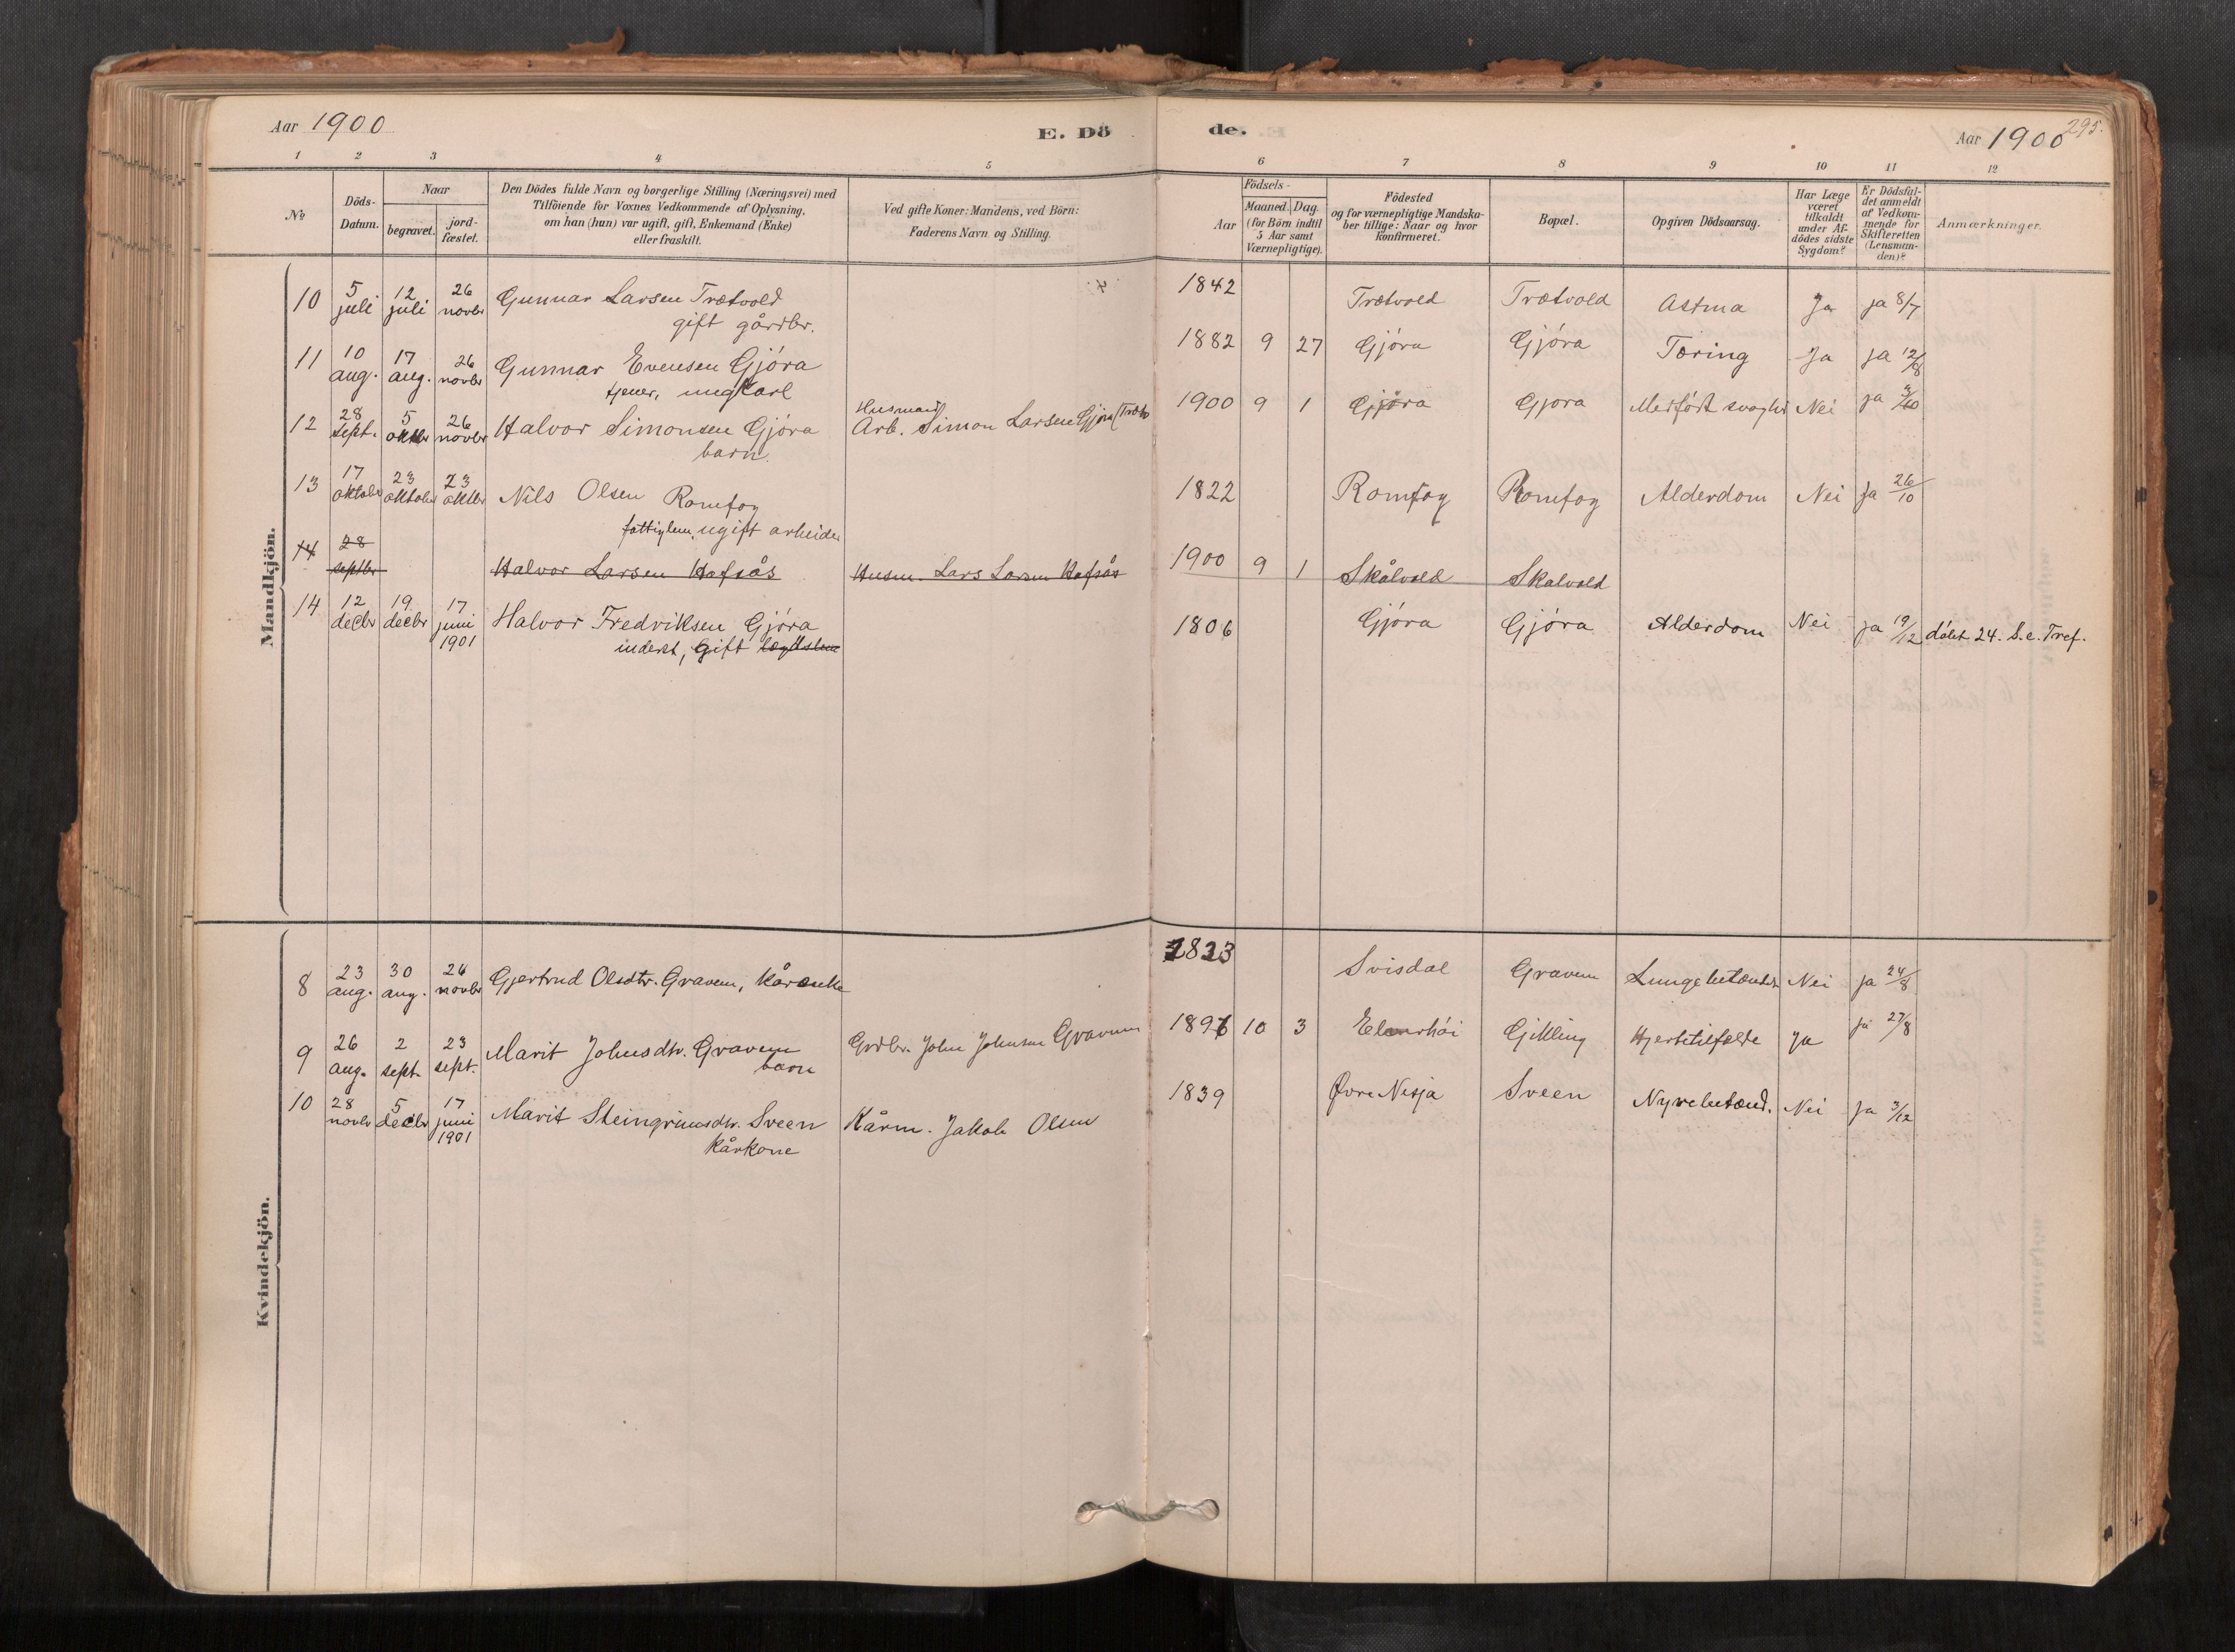 Aar 1900
E. Dö
de.
Aar 1900
295.
1 2 3 4 5 6 7 8 9 10 11 12
№
Döds-
Datum.
Naar
begravet.
jord-
fæstet.
Den Dödes fulde Navn og borgerlige Stilling (Næringsvei) med
Tilföiende for Voxnes Vedkommende af Oplysning,
om han (hun) var ugift, gift, Enkemand (Enke)
eller fraskilt.
Ved gifte Koner: Mandens, ved Börn:
Faderens Navn og Stilling.
Födsels-
Aar
Maaned. Dag.
(for Börn indtil
5 Aar samt
Værnepligtige).
Födested
og for værnepligtige Mandska-
ber tillige: Naar og hvor
Konfirmeret.
Bopæl.
Opgiven Dödsaarsag.
Har Læge
været
tilkaldt
under Af-
dödes sidste
Sygdom?
Er Dödsfal-
det anmeldt
af Vedkom-
mende for
Skifteretten
(Lensman-
den)?
Anmærkninger.
Mandkjön.
10 5 juli 12 juli 26 novbr Gunnar Larsen Trætvold 1842 Trætvold Trætvold Astma Ja ja 8/7
gift gårdbr.
11 10 aug. 17 aug. 26 novbr Gunnar Evensen Gjóra 1882 9 27 Gjóra Gjóra Tæring Ja ja 12/8
tjener, ungkarl
12 28 sept. 5 oktbr 26 novbr Halvor Simonsen Gjóra Husmand Arb. Simon Larsen Gjóra 1900 9 1 Gjöra Gjora Medfört svaghed Nei ja 3/10
barn.
13 17 oktober 23 oktober 23 oktbr Nils Olsen Romfog 1822 Romfog Romfog Alderdom Nei ja 26/10
fattiglem, ugift arbeider
14 28 septbr Halvor Larsen Hafsås Husm. Lars Larsen Hafsås 1900 9 1 Skålvold Skalvold
14 12 decbr 19 decbr 17 juni 1901 Halvor Fredriksen Gjóra 1806 Gjóra Gjóra Alderdom Nei ja 19/12 dólet 24. S. e. Tref.
inderst, gift lægdslem
Kvindekjön.
8 23 aug. 30 aug. 26 novbr Gjertrud Olsdtr. Gravem, kårenke 1823 Svisdal Gravem Lungebetændelse Nei ja 24/8
9 26 aug. 2 sept. 23 sept. Marit Johnsdtr. Gravem Grdbr. John Johnsen Gravem 1896 10 3 Elverhói Gikling Hjertetilfælde Ja ja 27/8
barn
10 28 novbr 5 decbr 17 juni 1901 Marit Steingrimsdtr. Sveen Kårm. Jakob Olsen 1839 Øvre Nisja Sveen Nyrebetænd. Nei ja 3/12
kårkone